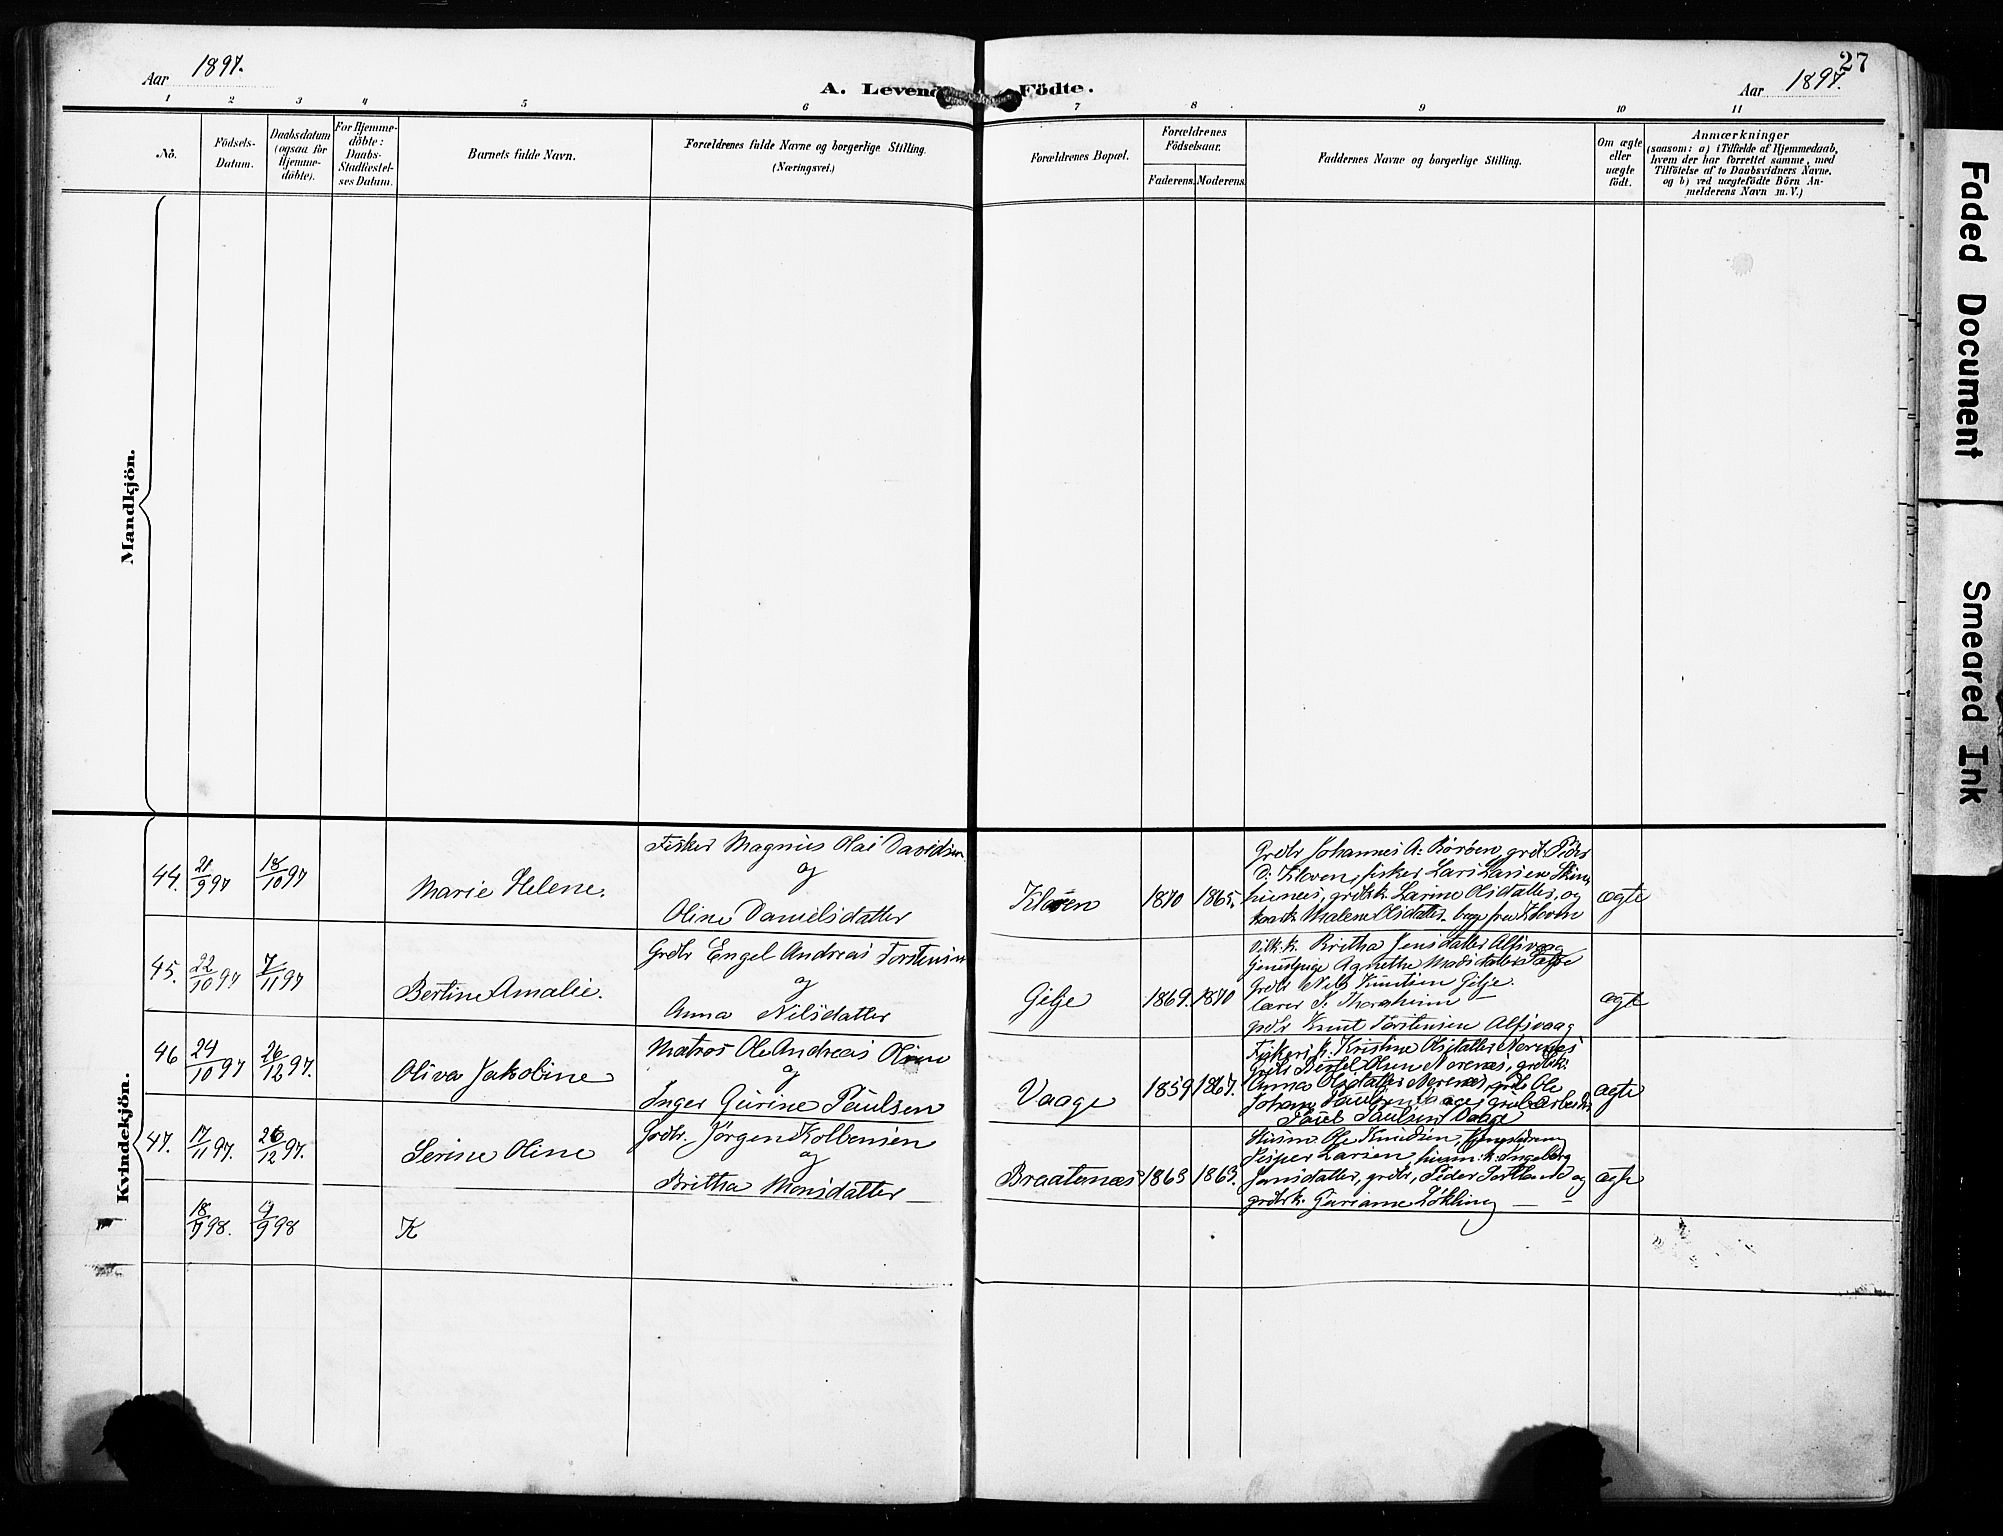 Aar 1897.
A. Levend Födte.
27
Aar 1897.
1 2 3 4 5 6 7 8 9 10 11
No.
Födsels-
Datum.
Daabsdatum
(ogsaa for
Hjemme-
döbte).
For Hjemme-
döbte:
Daabs-
Stadfæstel-
ses Datum.
Barnets fulde Navn.
Forældrenes fulde Navne og borgerlige Stilling.
(Næringsvei.)
Forældrenes Bopæl.
Forældrenes
Födselsaar.
Faderens. Moderens.
Faddernes Navne og borgerlige Stilling.
Om ægte
eller
uægte
födt.
Anmærkninger
(saasom: a) i Tilfælde af Hjemmedaab,
hvem der har forrettet samme, med
Tilföielse af to Daabsvidners Navne.
og b) ved uægtefödte Börn An-
melderens Navn m. V.)
Mandkjön.
Kvindekjön.
44. 21/9 97 18/10 97
Marie Helene.
Fisker Magnus Olai Davidsen
og
Oline Danielsdatter
Kloven 1870 1865.
Grdbr Johannes A.
D. Kloven, fisker Lars Larsen
grdbrk. Larine Olsdatter, og
Malene Olsdatter
ægte
45. 22/10 97 7/11 97
Bertine Amalie.
Grdbr Engel Andreas Torstensen
og
Anna Nilsdatter
Gilje 1869. 1870
Britha Jensdatter Alfsvaag
Agnethe Madsdatter
Grdbr Nils Knutsen Gilje.
lærer T. Thorsheim
grdbr Knut Torstensen Alfsvaag
ægte
46 24/10 97 26/12 97.
Oliva Jakobine
Matros Ole Andreas Olsen
og
Inger Gurine Paulsen
Vaage 1859 1867.
Fiskersk. Kristine Olsdatter Norenes
Grdbr Bertel Olsen Norenes, grdbrk.
Anna Olsdatter Norenes, grdbr Ole
Johan Paulsen Vaage, grubearbeider
Paul Paulsen Vaage
ægte
47. 17/11 97. 26/12 97.
Serine Oline
Grdbr. Jørgen Kolbensen
og
Britha Monsdatter
Braatenæs 1863 1863.
Husm Ole Knudsen,
Jesper Larsen husm.k. Ingeborg
Jonsdatter, grdbr. Peder Sortland og
grdbrk. Gurianne Løkling
ægte
18/7 98. 4/9 98
K
Faded Document
Smeared Ink